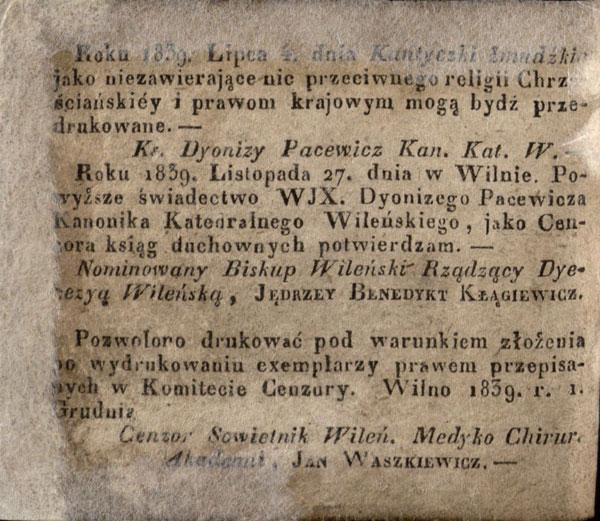 Roku 1839. Lipca 4. dnia Kantyczki żmudźkie
jako niezawierające nic przeciwnego religii Chrze-
ściańskiéy i prawom krajowym mogą bydź prze-
drukowane. —
Kś. Dyonizy Pacewicz Kan. Kat. W. —
Roku 1839. Listopada 27. dnia w Wilnie. Po-
wyższe świadectwo WJX. Dyonizego Pacewicza
Kanonika Katedralnego Wileńskiego, jako Cen-
zora ksiąg duchownych potwierdzam. —
Nominowany Biskup Wileński Rządzący Dye-
cezyą Wileńską, JĘDRZEY BENEDYKT KŁĄGIEWICZ.
Pozwolono drukować pod warunkiem złożenia
po wydrukowaniu exemplarzy prawem przepisa-
nych w Komitecie Cenzury. Wilno 1839. r. 1.
Grudnia
Cenzor Sowietnik Wileń. Medyko Chirur.
Akademii, JAN WASZKIEWICZ. —